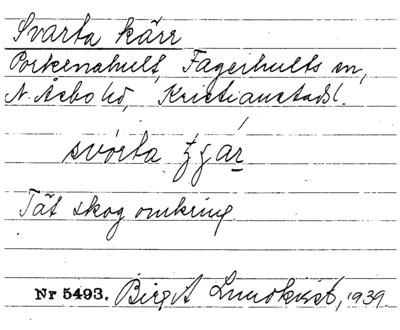 Svarta kärr
Porkenahult Fagerhults sn,
N. Åsbo hd, Kristianstads l.
svórta
Tät skog omkring
Nr 5493. Birgit Lundkvist, 1939